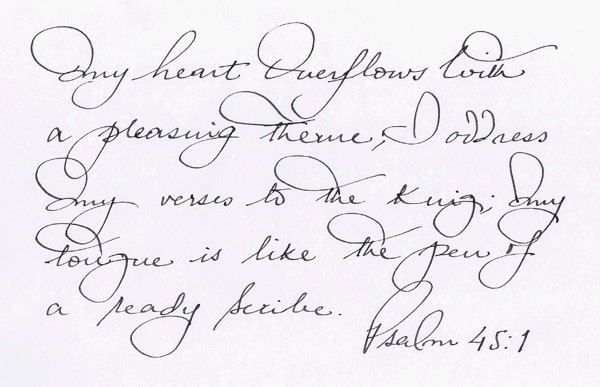 My heart Overflows with
a pleasing theme; I address
My verses to the King; My
tongue is like the pen of
a ready scribe.
Psalm 45:1